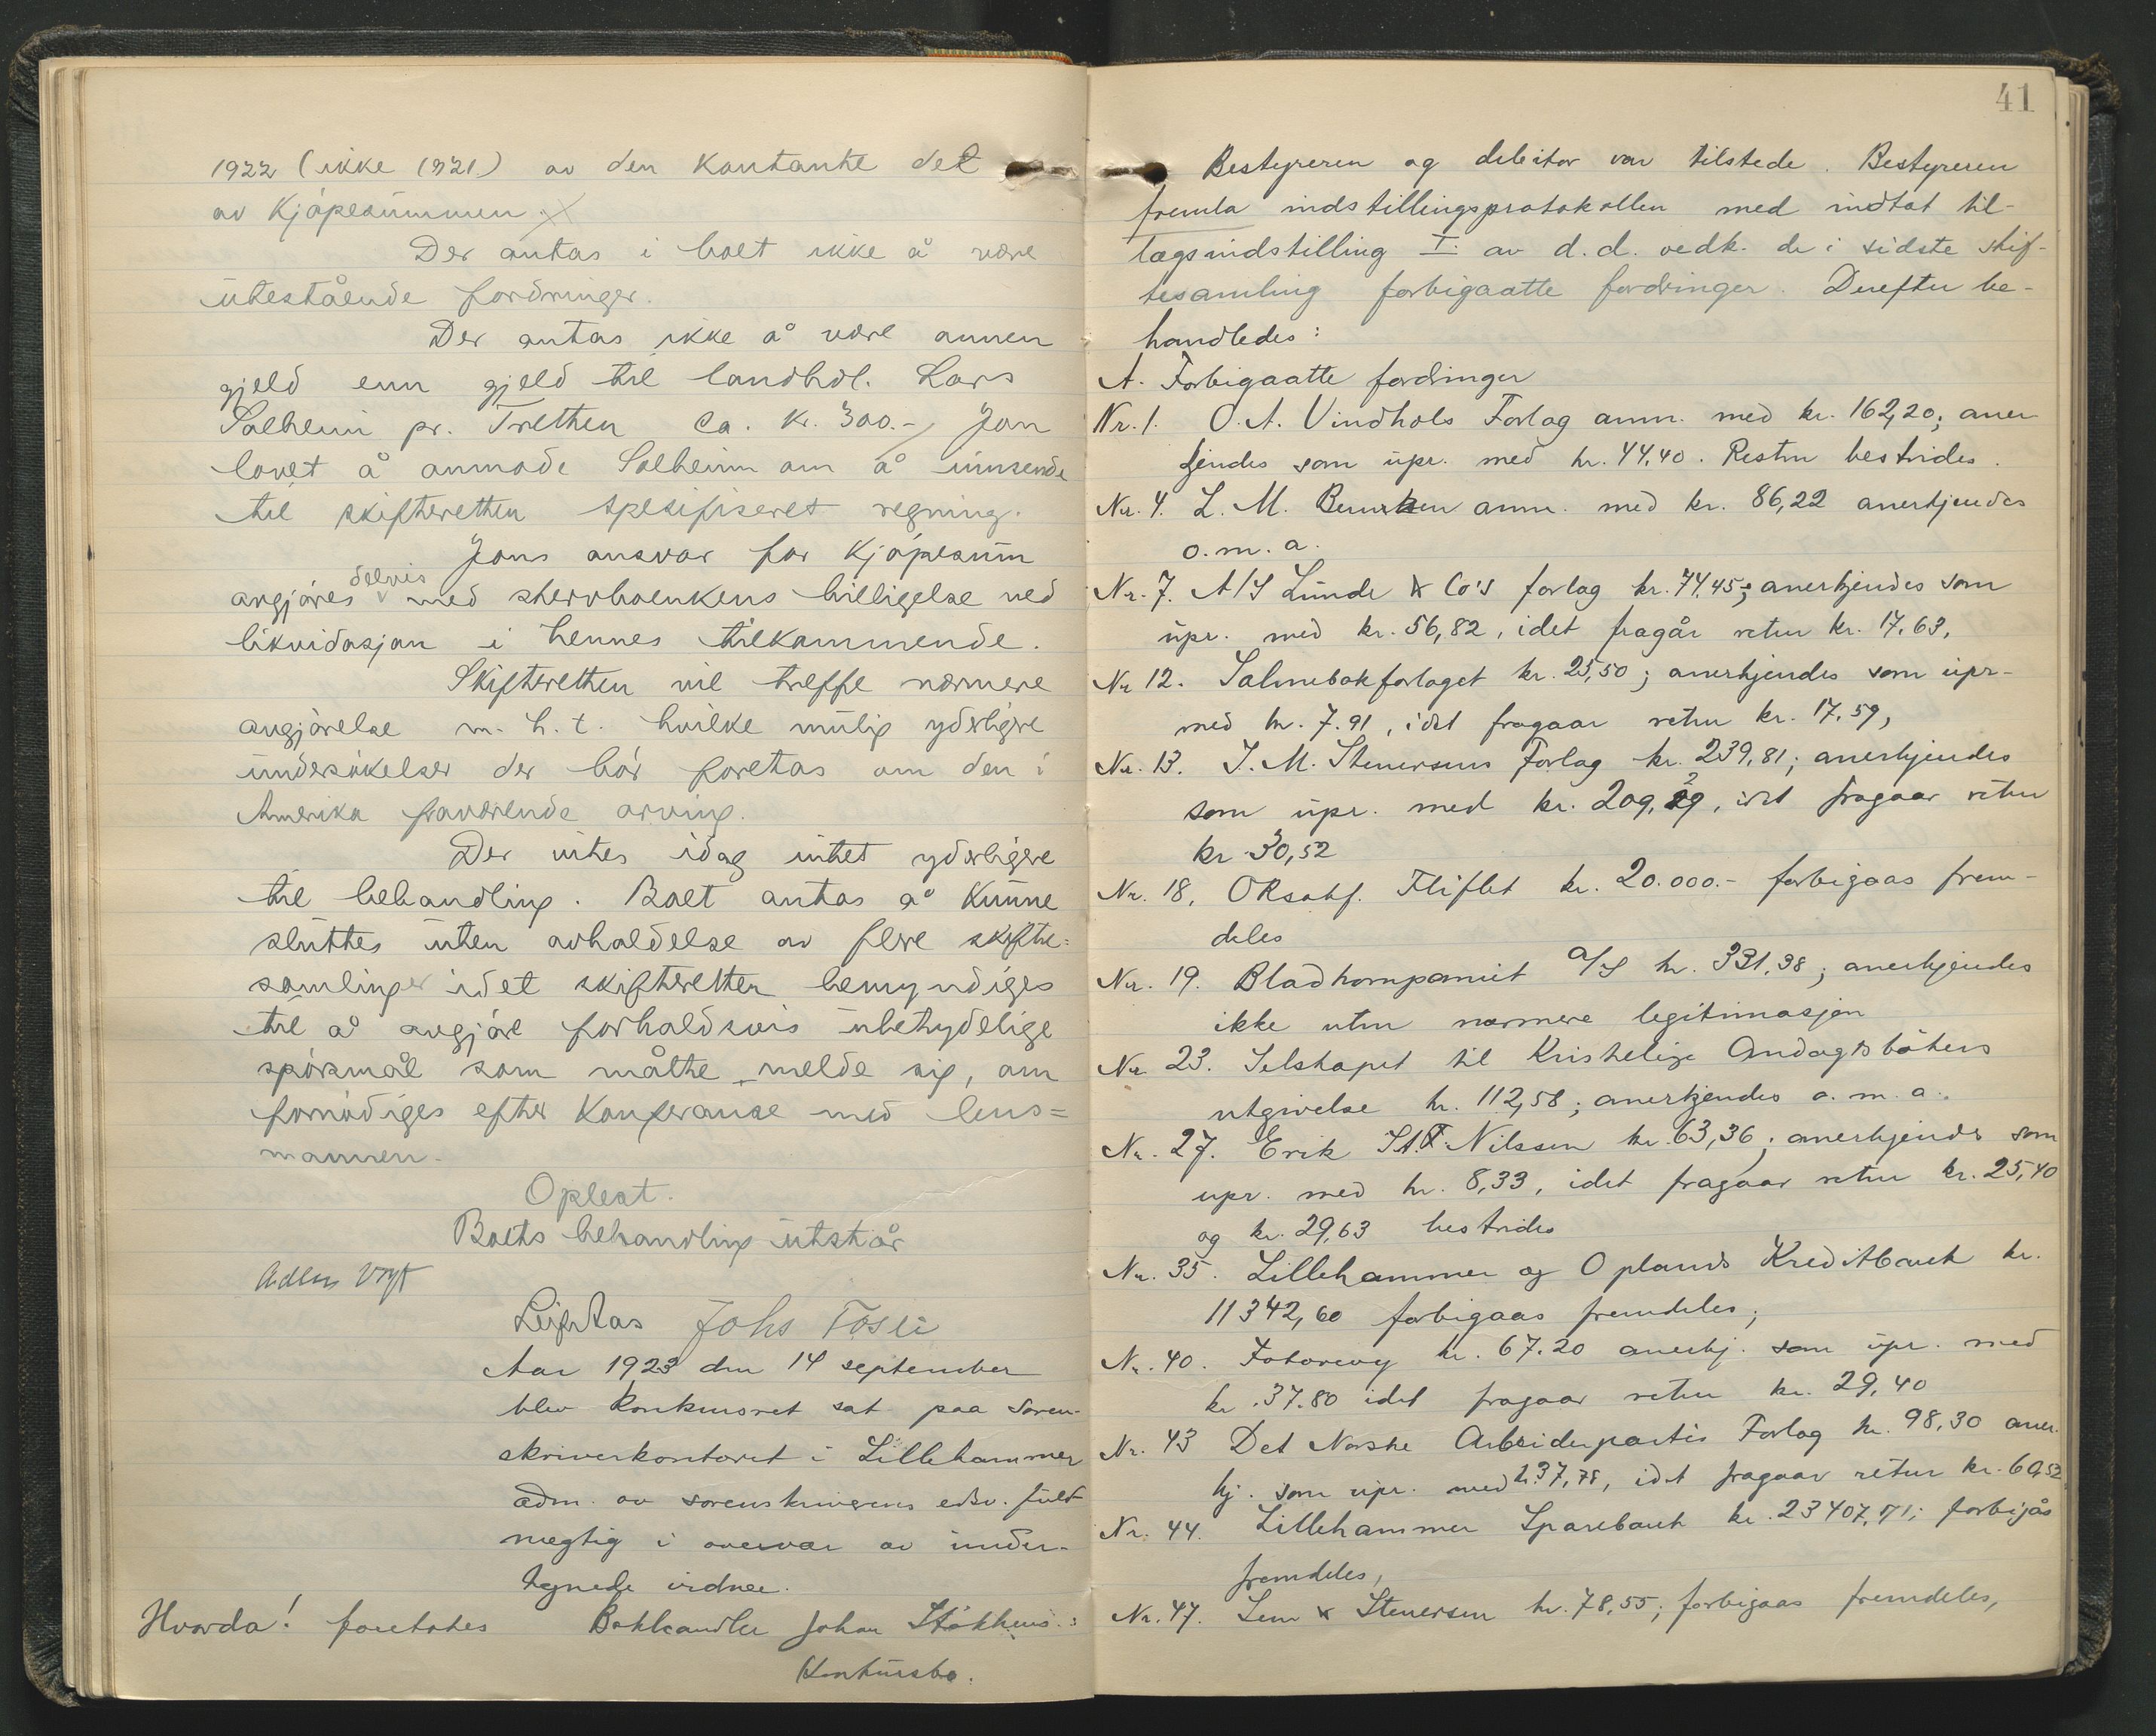 1922 (ikke 1921) av den kontante del
av kjøpesummen.
Der antas i boet ikke å være
utestående fordringer.
Der antas ikke å være annen
gjeld enn gjeld til landhdl. Lars
Solheim pr. Tretten ca. kr. 300.-, Jon
lovet å anmode Solheim om å innsende
til skifteretten spesifiseret regning.
Jons ansvar for kjøpesum
avgjøres delvis med stervboenkens billigelse ved
likvidasjon i hennes tilkommende.
Skifteretten vil treffe nærmere
avgjørelse m.h.t. hvilke mulig yderligre
undersøkelser der bør foretas om den i
Amerika fraværende arving.
Der vites idag intet yderligere
til behandling. Boet antas å kunne
sluttes uten avholdelse av flere skifte=
samlinger idet skifteretten bemyndiges
til å avgjøre forholdsvis ubetydelige
spørsmål som måtte melde sig, om
fornødiges efter konferanse med lens=
mannen.
Oplest.
Boets behandling utstår
Leif Aas Johs Fosli
Aar 1923 den 14 september
blev konkursret sat paa soren-
skriverkontoret i Lillehammer
adm. av sorenskriverens edsv. fuld
mægtig i overvær av under-
tegnede vidner.
Hvorda! foretokes Bokhandler Johan Stokkens:
Konkursbo.
41
Bestyreren og debitor var tilstede. Bestyreren
fremla indstillingsprotokollen med indtat til-
lægsindstilling I av d.d. vedk. de i sidste skif-
tesamling forbigaatte fordringer. Derefter be-
handledes:
A. Forbigaatte fordringer
Nr. 1. O. A. Vindhols Forlag anm. med kr. 162,20; aner
kjendes som upr. med kr. 44,40. Resten bestrides.
Nr. 4. L. M. anm. med kr. 86,22 anerkjendes
o.m.a.
Nr. 7. A/S Lunde & Co's forlag kr. 74,45; anerkjendes som
upr. med kr. 56,82, idet fragår retur kr. 17.63,
Nr 12. Salmebokforlaget kr. 25,50; anerkjendes som upr-
med kr. 7.91, idet fragaar retur kr. 17,59,
Nr. 13. J. M. Stenersens Forlag kr. 239,81; anerkjendes
som upr. med kr. 209,29, idet fragaar retur
kr 30,52
Nr. 18, ORsakf. Fliflet kr. 20.000.- forbigaas frem-
deles
Nr. 19. Bladkompaniet A/S kr. 331,38; anerkjendes
ikke uten nærmere legitimasjon
Nr 23. Selskapet til Kristelige Andagtsbøkers
utgivelse kr. 112,58; anerkjendes o. m. a.
Nr. 27. Erik St. Nilssen kr. 63,36; anerkjendes som
upr. med kr. 8,33, idet fragaar retur kr. 25,40
og kr. 29,63 bestrides
Nr. 35. Lillehammer og Oplands Kreditbank kr.
11342,60 forbigaas fremdeles;
Nr. 40. Fotorevy kr. 67.20 anerkj. som upr. med
kr. 37.80 idet fragaar retur kr. 29,40
Nr. 43 Det Norske Arbeiderpartis Forlag kr. 98,30 aner.
kj. som upr. med 37,78, idet fragaar retur kr. 60,52
Nr. 44. Lillehammer Sparebank kr. 23407,71; forbigås
fremdeles,
Nr. 47. Lem & Stenersen kr. 78,55; forbigaas fremdeles,